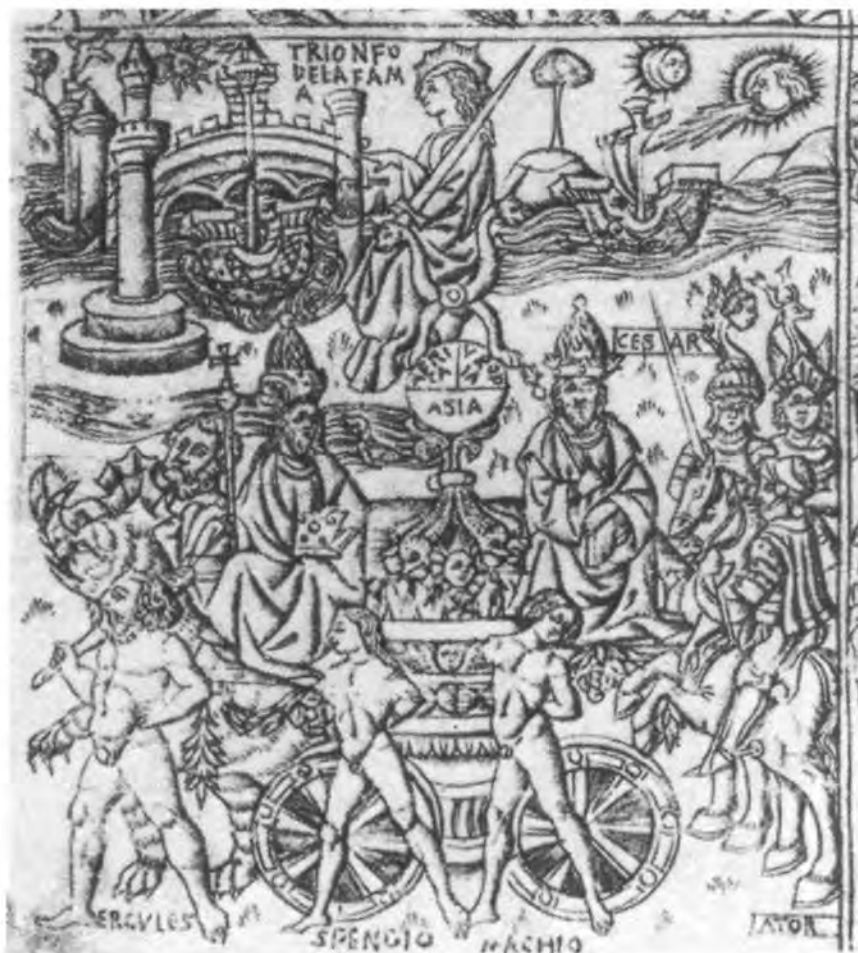 TRIONFO
DELAFAM
A
CESAR
ASIA
ERCVLES
SPENDIO
MACHIO